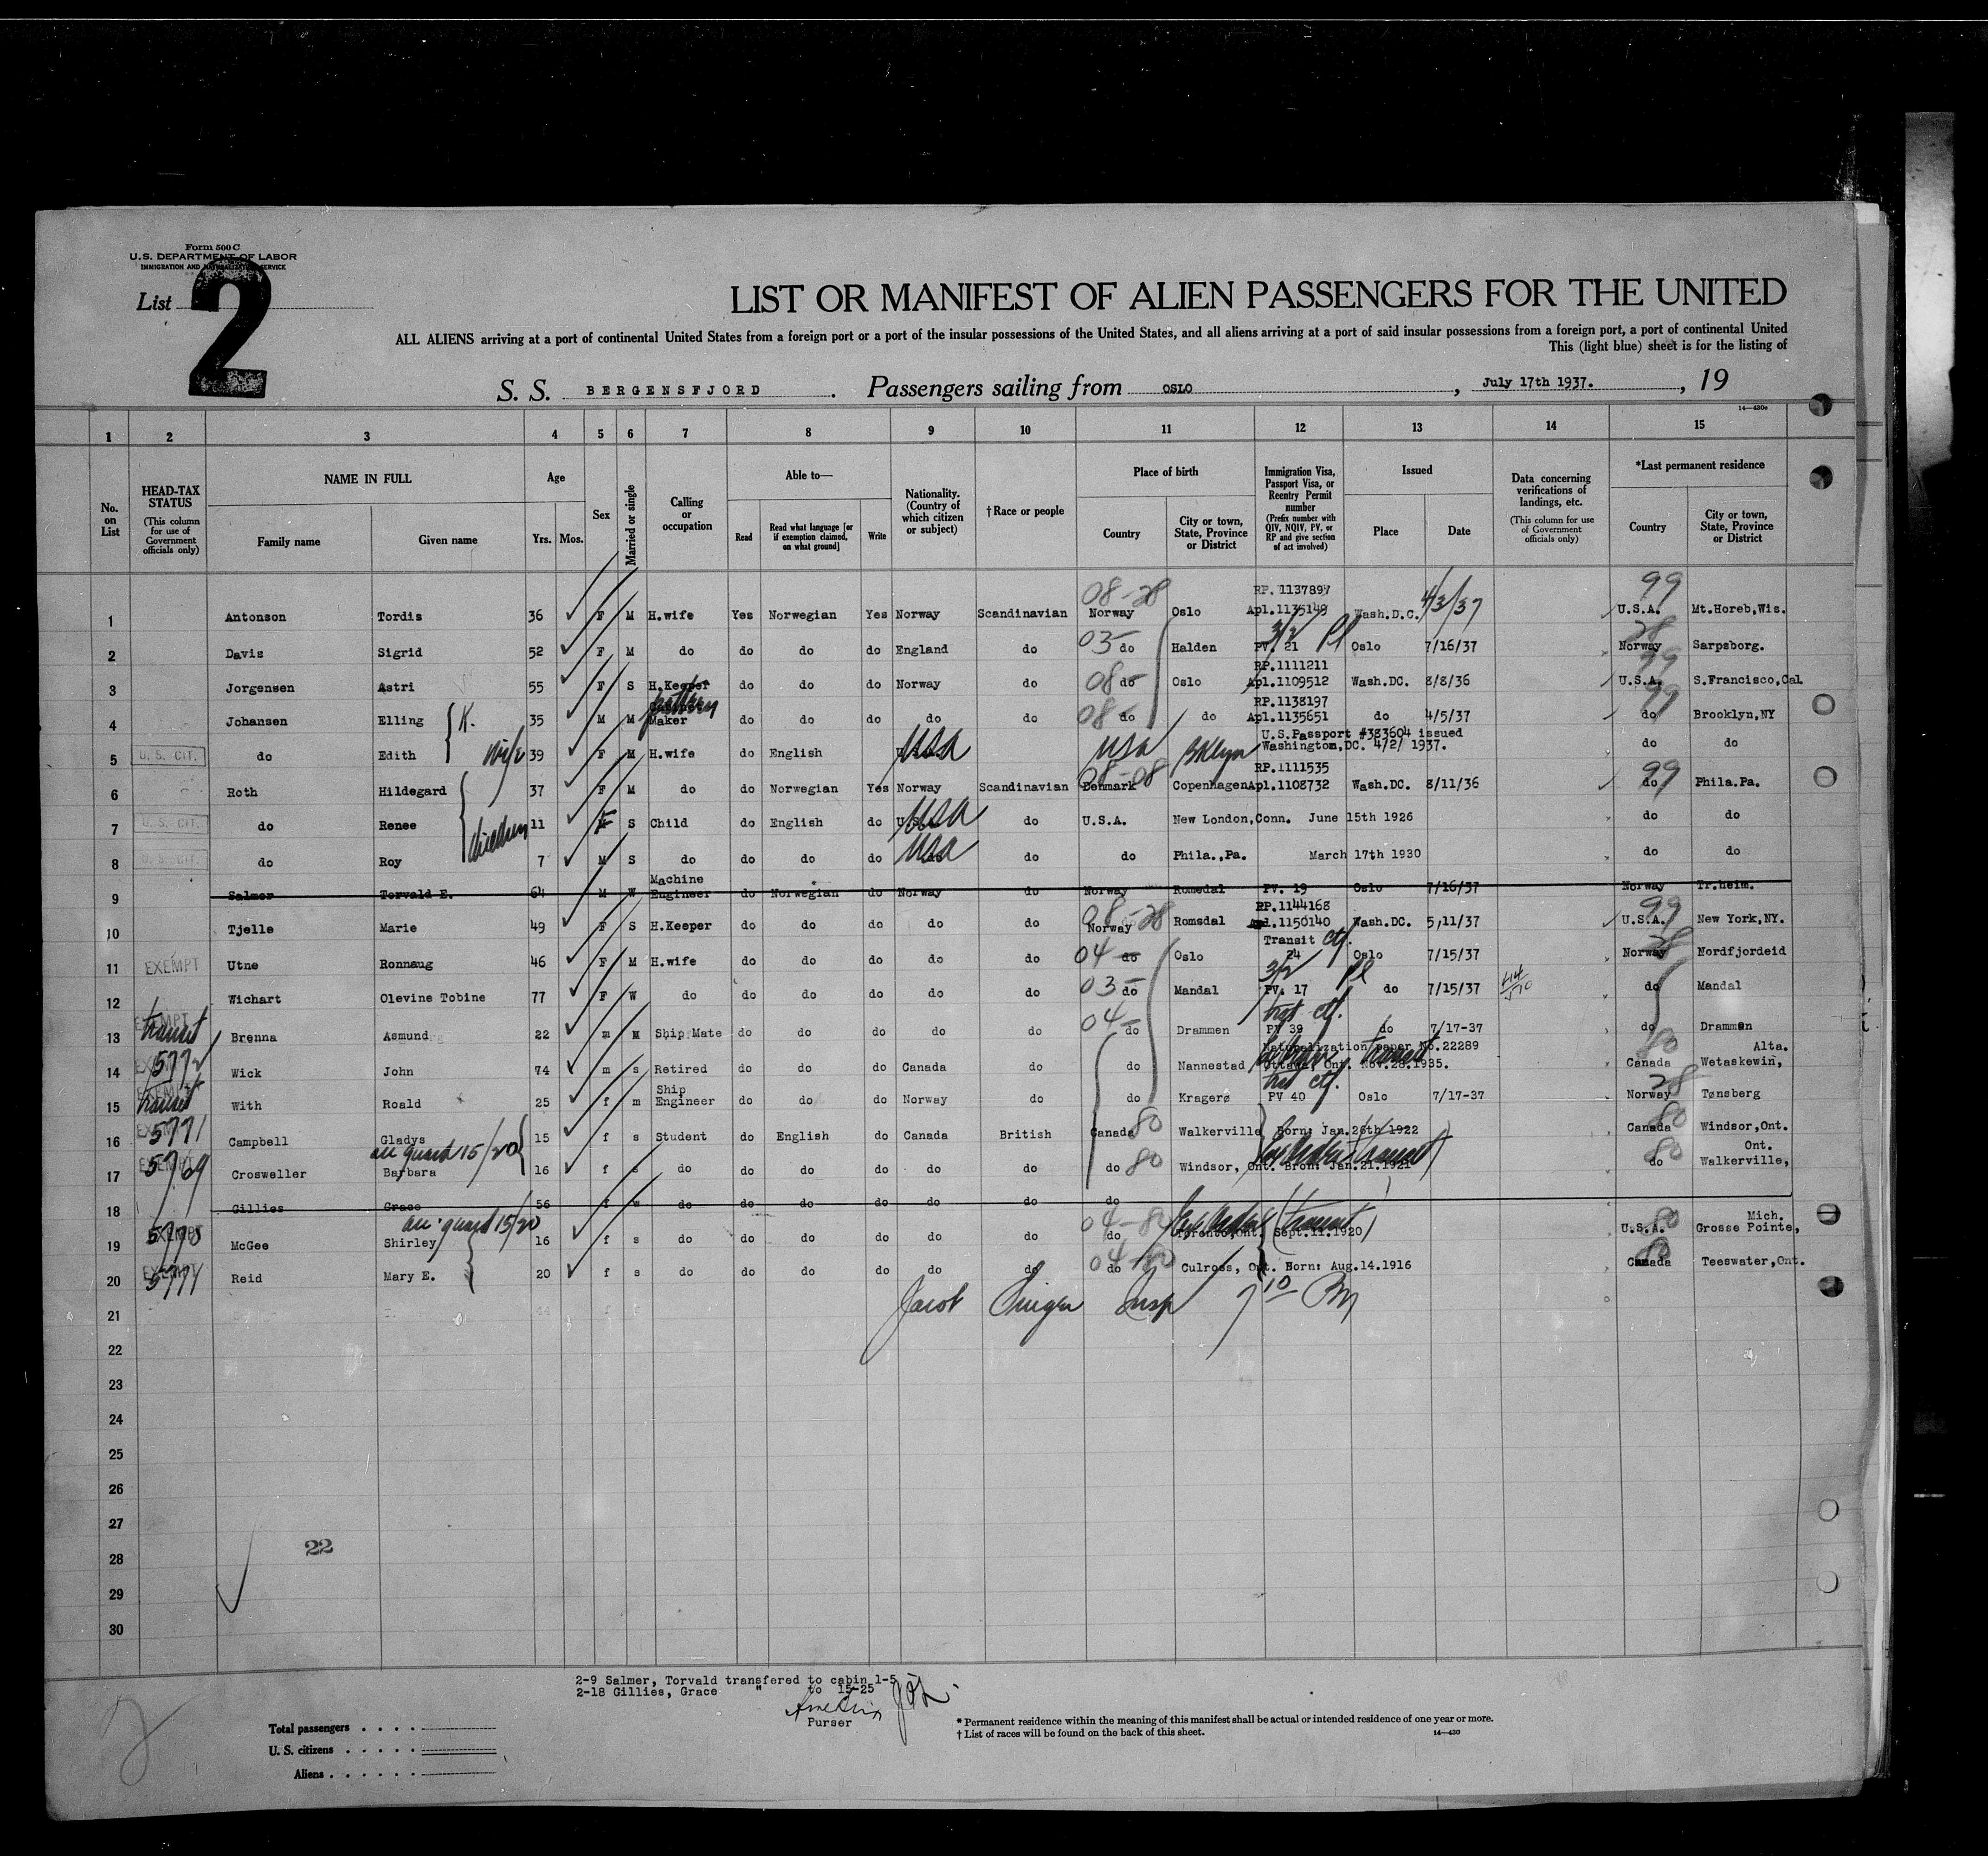 Form 500 C
U.S. DEPARTMENT OF LABOR
IMMIGRATION AND NATURALIZATION SERVICE
List 2
LIST OR MANIFEST OF ALIEN PASSENGERS FOR THE UNITED
ALL ALIENS arriving at a port of continental United States from a foreign port or a port of the insular possessions of the United States, and all aliens arriving at a port of said insular possessions from a foreign port, a port of continental United
This (light blue) sheet is for the listing of
S. S. BERGENSFJORD. Passengers sailing from OSLO, July 17th 1937., 19
14—430c
1 2 3 4 5 6 7 8 9 10 11 12 13 14 15
No. on List
HEAD-TAX STATUS (This column for use of Government officials only)
NAME IN FULL Family name Given name
Age Yrs. Mos.
Sex
Married or single
Calling or occupation
Able to— Read Read what language [or if exemption claimed, on what ground] Write
Nationality. (Country of which citizen or subject)
†Race or people
Place of birth Country City or town, State, Province or District
Immigration Visa, Passport Visa, or Reentry Permit number (Prefix number with QIV, NQIV, PV, or RP and give section of act involved)
Issued Place Date
Data concerning verifications of landings, etc. (This column for use of Government officials only)
*Last permanent residence Country City or town, State, Province or District
08-28 RP.1137897 99
1 Antonson Tordis 36 F M H.wife Yes Norwegian Yes Norway Scandinavian Norway Oslo Apl.1135149 Wash.D.C. 4/3/37 U.S.A. Mt.Horeb,Wis.
03- 3/2 28
2 Davis Sigrid 52 F M do do do do England do do Halden PV. 21 Oslo 7/16/37 Norway Sarpsborg.
08- RP.1111211 99
3 Jorgensen Astri 55 F S H.Keeper do do do Norway do do Oslo Apl.1109512 Wash.DC. 8/8/36 U.S.A. S.Francisco,Cal
08- RP.1138197 99
4 Johansen Elling 35 M M Maker do do do do do do do Apl.1135651 do 4/5/37 do Brooklyn,NY
U.S.Passport #383604 issued
5 U. S. CIT. do Edith wife 39 F M H.wife do English USA USA Bklyn Washington,DC. 4/2/ 1937. do do
08-08 RP.1111535 99
6 Roth Hildegard 37 F M do do Norwegian Yes Norway Scandinavian Denmark Copenhagen Apl.1108732 Wash.DC. 8/11/36 do Phila.Pa.
7 U. S. CIT. do Renee children 11 F S Child do English do USA do U.S.A. New London,Conn. June 15th 1926 do do
8 U. S. CIT. do Roy 7 M S do do do do USA do do Phila.,Pa. March 17th 1930 do do
9 Salmer Torvald E. 64 M W Machine Engineer do Norwegian do Norway do Norway Romsdal PV. 19 Oslo 7/16/37 Norway Tr.heim.
08-28 RP.1144168 99
10 Tjelle Marie 49 F S H.Keeper do do do do do Norway Romsdal Apl.1150140 Wash.DC. 5,11/37 U.S.A. New York,NY.
04- Transit ctf. 28
11 EXEMPT Utne Ronnaug 46 F M H.wife do do do do do do Oslo 24 Oslo 7/15/37 Norway Nordfjordeid
03- 3/2
12 Wichart Olevine Tobine 77 F W do do do do do do do Mandal PV. 17 do 7/15/37 do Mandal
04- ctf.
13 EXEMPT transit Brenna Asmund 22 m M Ship Mate do do do do do do Drammen PV 39 do 7/17-37 do Drammen
Naturalization paper No.22289 80 Alta.
14 5772 Wick John 74 m s Retired do do do Canada do do Nannestad Ottawa, Ont. Nov.28.1935. transit Canada Wetaskewin,
ctf. 28
15 EXEMPT transit With Roald 25 f m Ship Engineer do do do Norway do do Kragerø PV 40 Oslo 7/17-37 Norway Tønsberg
16 EXEMPT 5771 Campbell Gladys 15 f s Student do English do Canada British Canada 80 Walkerville Born: Jan.26th 1922 80 Canada Windsor,Ont.
acc guard 15/20 80 Ont.
17 EXEMPT 5769 Crosweller Barbara 16 f s do do do do do do do 80 Windsor, Ont. Bron: Jan.21.1921 transit do Walkerville,
18 Gillies Grace 56 f w do do do do do do do
acc guard 15/20 04- transit 80 Mich.
19 EXEMPT 5770 McGee Shirley 16 f s do do do do do do do Toronto,Ont. Sept.11.1920 U.S.A. Grosse Pointe,
04- 80
20 EXEMPT Reid Mary E. 20 f s do do do do do do do Culross, Ont. Born: Aug.14.1916 Canada Teeswater,Ont.
21 Jacob Singer Insp
22
23
24
25
26
27
28 22
29
30
2-9 Salmer, Torvald transfered to cabin 1-5
2-18 Gillies, Grace " to 15-25
Purser
Total passengers . . . .
U. S. citizens . . . . .
Aliens . . . . . .
* Permanent residence within the meaning of this manifest shall be actual or intended residence of one year or more.
† List of races will be found on the back of this sheet.
14—430
2